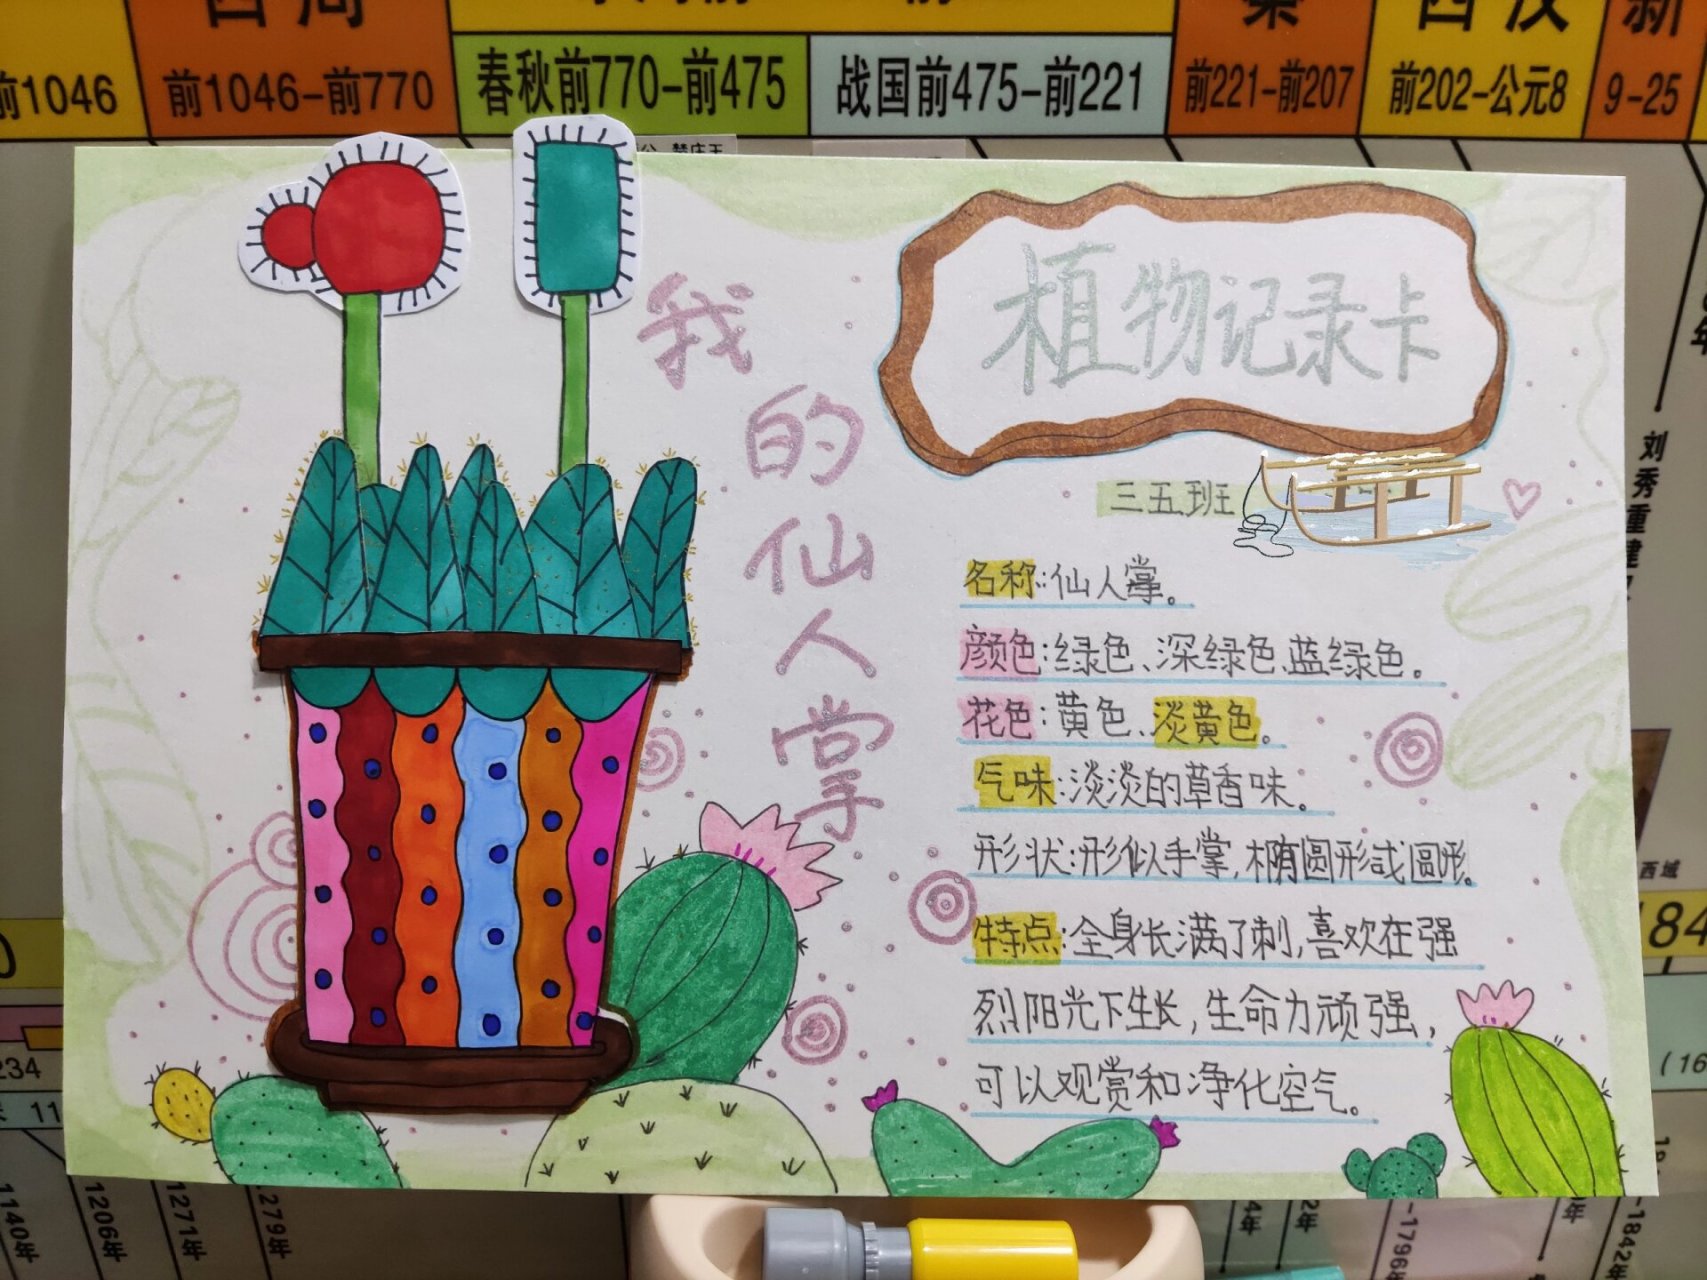 西周
秦
西汉
新
前1046
前1046-前770
春秋前770-前475
战国前475-前221
前221-前207
前202-公元8
9-25
植物记录卡
我的仙人掌
三五班
名称:仙人掌。
颜色:绿色、深绿色、蓝绿色。
花色:黄色、淡黄色。
气味:淡淡的草香味。
形状:形似手掌,椭圆形或圆形。
特点:全身长满了刺,喜欢在强
烈阳光下生长,生命力顽强,
可以观赏和净化空气。
刘秀重建
西域
184
234
11
(16
1140年
1206年
1271年
1279年
-1796年
-1842年